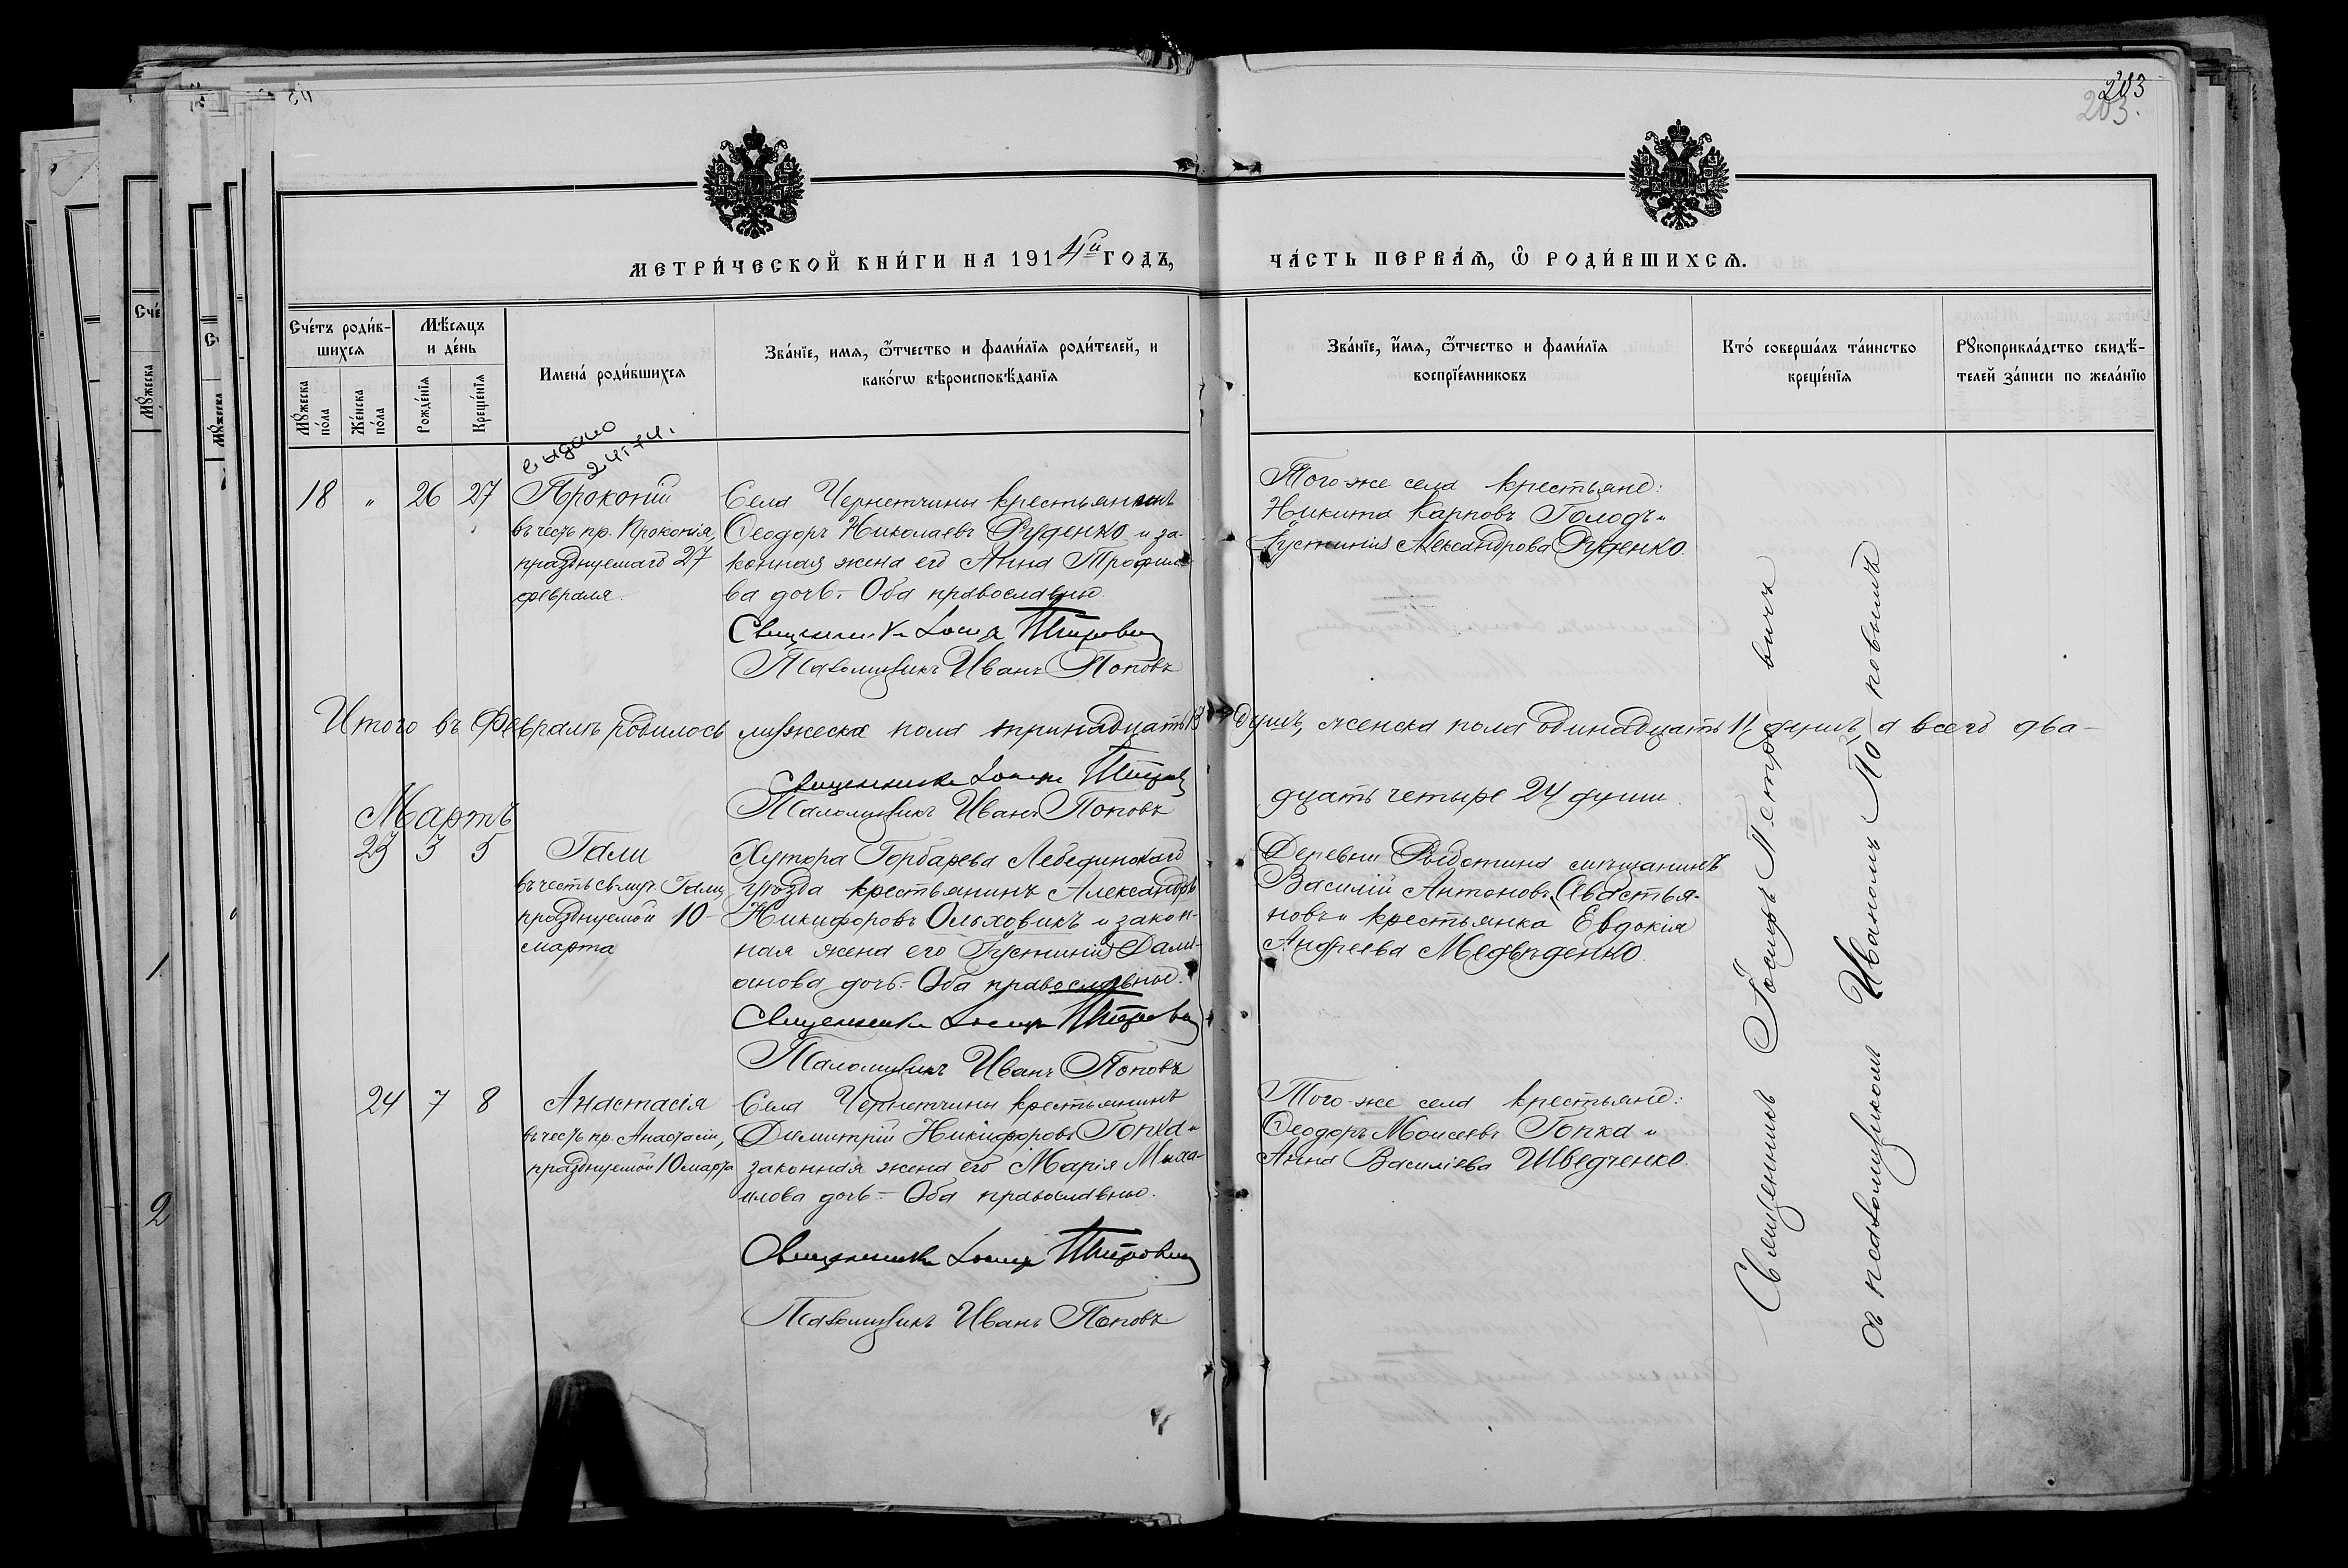 203
203.
МЕТРИ́ЧЕСКОЙ КНИ́ГИ НА 1914й ГОДЪ,
ЧА́СТЬ ПЕРВА́Ѧ, Ѽ РОДИ́ВШИХСѦ.
Сче́тъ роди́в-
шихсѧ
Мѣ́сяцъ
и де́нь
Мꙋ́жеска
по́ла
Же́нска
по́ла
Рожде́нїѧ
Креще́нїѧ
Имена́ роди́вшихсѧ
Зва́нїе, имѧ, ѻ҆́тчество и фами́лїѧ роди́телей, и
како́гѡ вѣроисповѣ́данїѧ
Зва́нїе, и҆́мѧ, ѻ҆́тчество и фами́лїѧ
воспрїе́мниковъ
Кто́ соверша́лъ та́инство
креще́нїѧ
Рꙋкоприкла́дство свидѣ́-
телей за́писи по жела́нїю
выдано
18 " 26 27
Прокопій
въ честь пр. Прокопія,
празднуемаго 27
февраля.
Села Чернетчины крестьянинъ
Ѳеодоръ Николаевъ Руденко и за-
конная жена его Анна Трофимо-
ва дочь. - Оба православные.
Священникъ Іосифъ Петровичъ
Псаломщикъ Иванъ Поповъ
Того-же села крестьяне:
Никита Карповъ Голодъ и
Іустинія Александрова Руденко.
Итого въ Февралѣ родилось мужеска пола тринадцать 13 душъ, женска пола одинадцать 11 душъ, а всего два-
дцать четыре 24 души.
Священникъ Іосифъ Петровичъ
Псаломщикъ Иванъ Поповъ
Мартъ
23 3 5
Гали
въ честь св. муч. Гали,
празднуемой 10-
марта
Хутора Горбарева Лебединскаго
уѣзда крестьянинъ Александръ
Никифоровъ Ольховикъ и закон-
ная жена его Іустинія Дамі-
анова дочь. - Оба православные.
Священникъ Іосифъ Петровичъ
Псаломщикъ Иванъ Поповъ
Деревни мѣщанинъ
Василій Антоновъ Савастья-
новъ и крестьянка Евдокія
Андреева Медвѣденко.
24 7 8
Анастасія
въ честь пр. Анастасіи,
празднуемой 10 марта
Села Чернетчины крестьянинъ
Димитрій Никифоровъ Гопка и
законная жена его Марія Миха-
илова дочь. - Оба православные.
Священникъ Іосифъ Петровичъ
Псаломщикъ Иванъ Поповъ
Того-же села крестьяне:
Ѳеодоръ Моисеевъ Гопка и
Анна Василіева Шведченко.
Священникъ Іосифъ Петровичъ
съ псаломщикомъ Иваномъ Поповымъ
Сче
Мꙋ́жеска
1
2